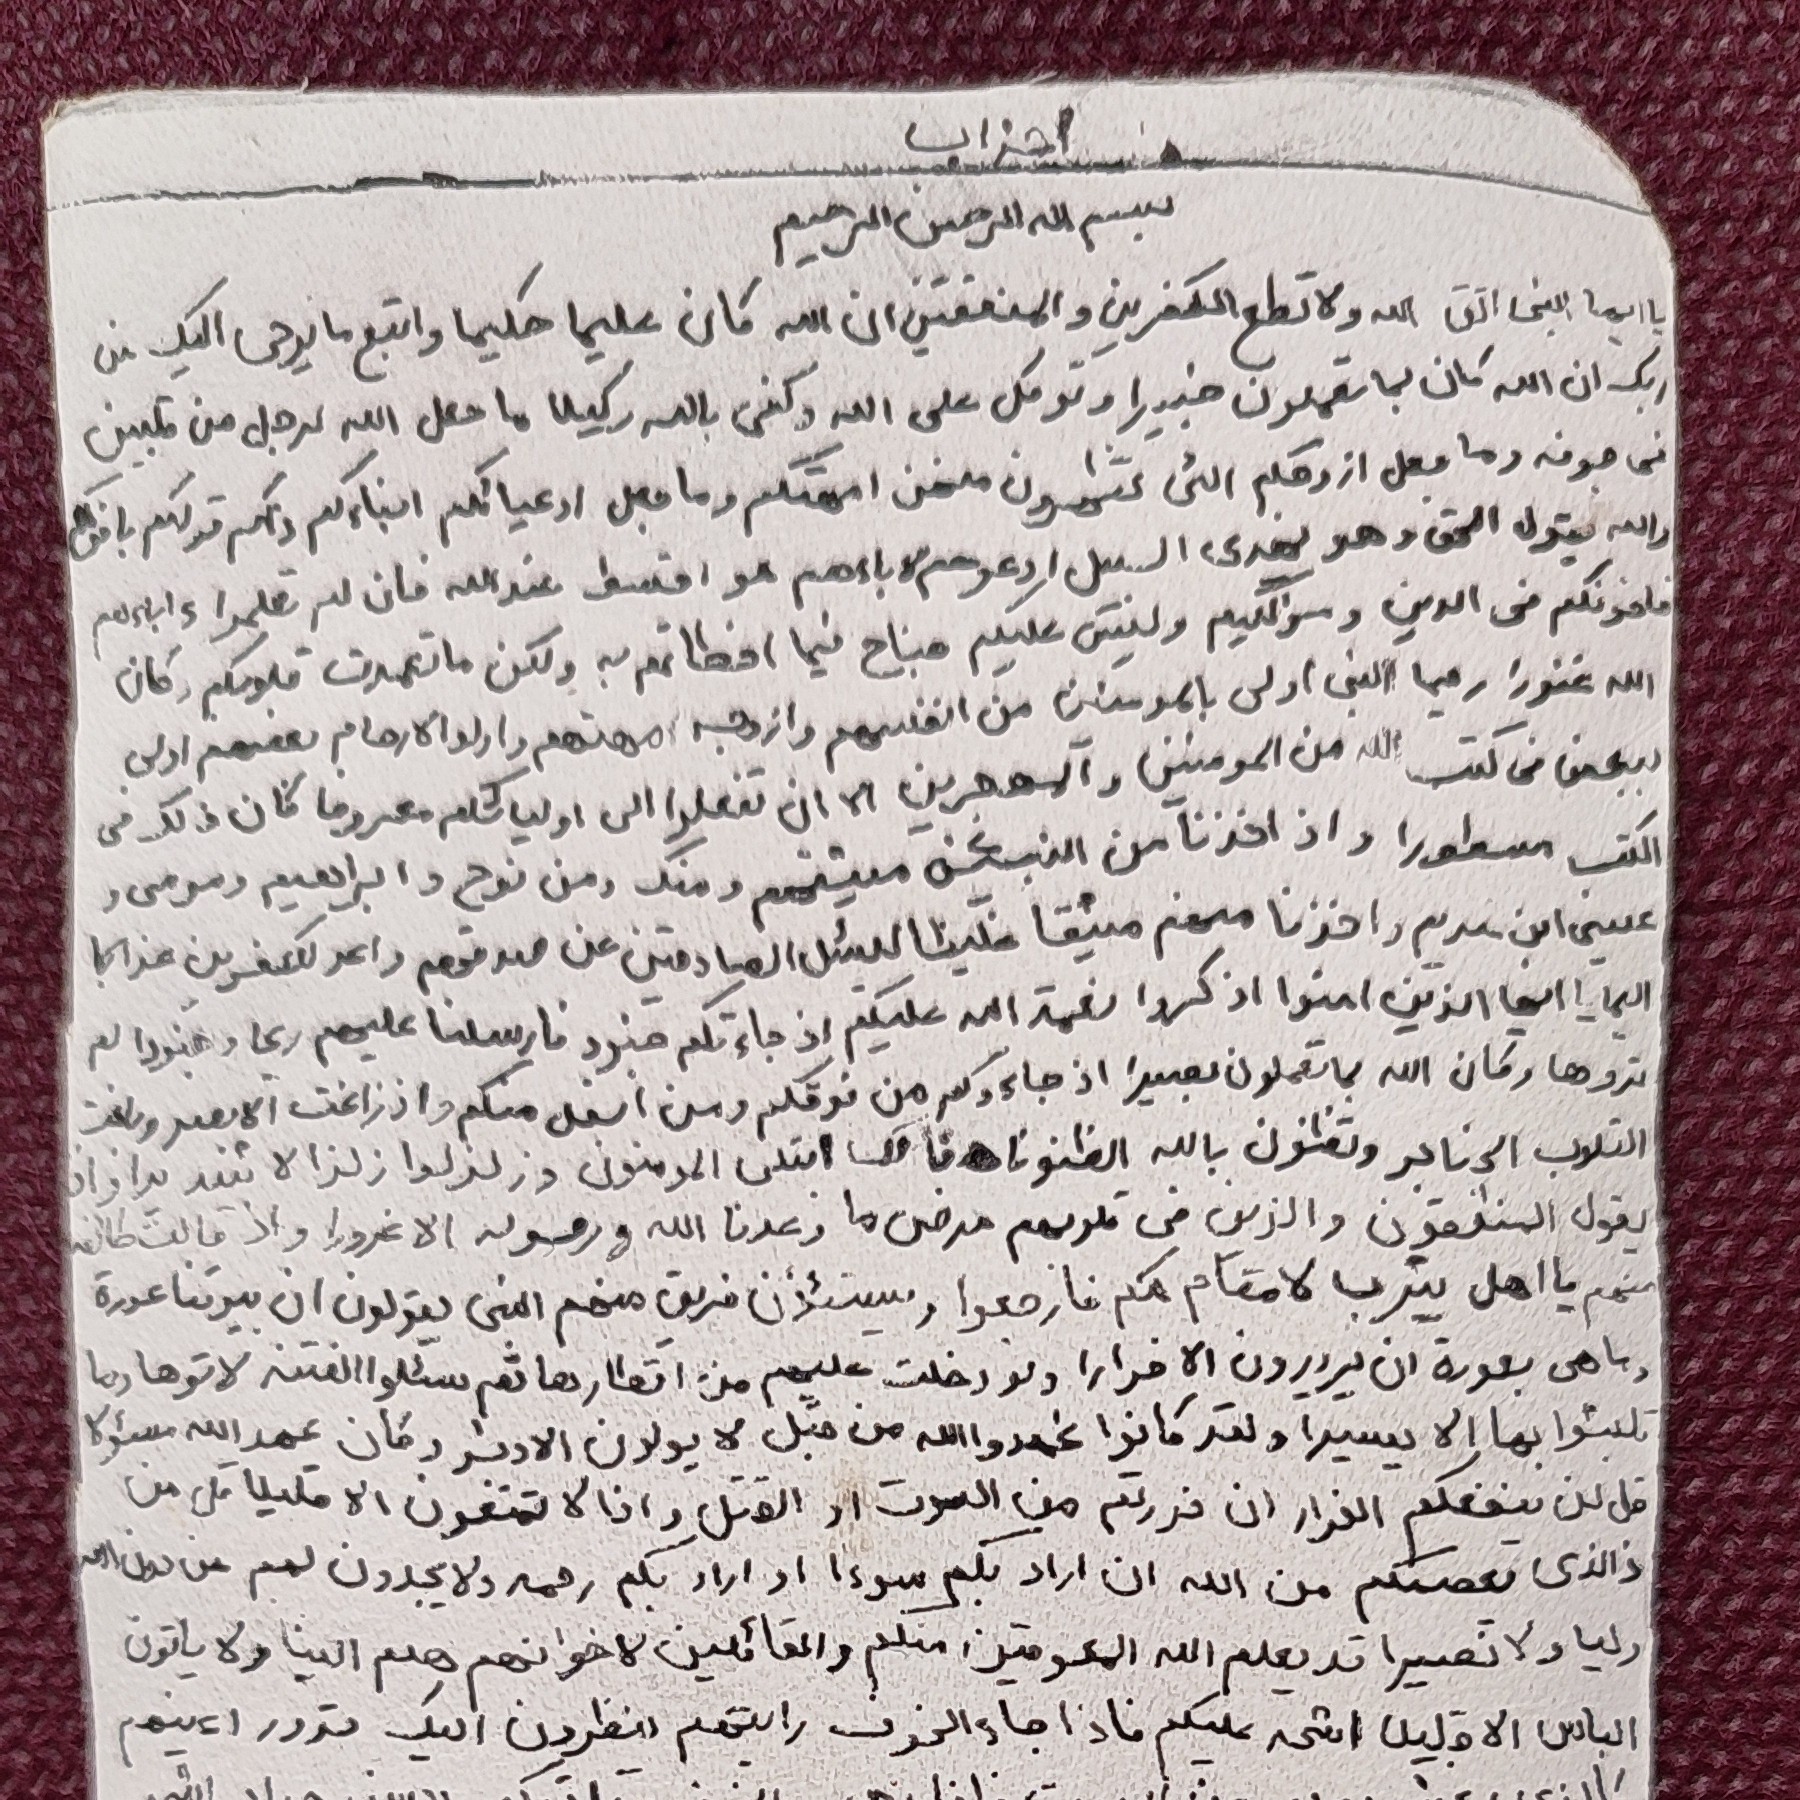 احزاب
بسم الله الرحمن الرحيم
يا ايها النبى اتق الله ولا تطع الكفرين والمنفقين ان الله كان عليما حكيما واتبع ما يوحى اليك من
ربك ان الله كان بما تعملون خبيرا وتوكل على الله وكفى بالله وكيلا ما جعل الله لرجل من قلبين
فى جوفه وما جعل ازوجكم الئى تظهرون منهن امهتكم وما جعل ادعيائكم ابناءكم ذلكم قولكم بافواهكم
والله يقول الحق وهو يهدى السبيل ادعوهم لاباءهم هو اقسط عند الله فان لم تعلموا ءاباءهم
فاخونكم فى الدين ومواليكم وليس عليكم جناح فيما اخطاتم به ولكن ما تعمدت قلوبكم وكان
الله غفورا رحيما النبى اولى بالمومنين من انفسهم وازوجه امهتهم واولوا الارحام بعضهم اولى
ببعض فى كتب الله من المومنين والمهجرين الا ان تفعلوا الى اوليائكم معروفا كان ذلك فى
الكتب مسطورا واذ اخذنا من النبين ميثقهم ومنك ومن نوح وابراهيم وموسى و
عيسى ابن مريم واخذنا منهم ميثقا غليظا ليسئل الصادقين عن صدقهم واعد للكفرين عذابا
اليما يا ايها الذين امنوا اذكروا نعمة الله عليكم اذ جاءتكم جنود فارسلنا عليهم ريحا وجنودا لم
تروها وكان الله بما تعملون بصيرا اذ جاءوكم من فوقكم ومن اسفل منكم واذ زاغت الابصر وبلغت
القلوب الحناجر وتظنون بالله الظنونا هنالك ابتلى المومنون وزلزلوا زلزالا شديدا واذ
يقول المنفقون والذين فى قلوبهم مرض ما وعدنا الله ورسوله الا غرورا واذ قالت طائفة
منهم يا اهل يثرب لا مقام لكم فارجعوا ويستئذن فريق منهم النبى يقولون ان بيوتنا عورة
وما هى بعورة ان يريدون الا فرارا ولو دخلت عليهم من اقطارها ثم سئلوا الفتنة لاتوها وما
تلبثوا بها الا يسيرا ولقد كانوا عهدوا الله من قبل لا يولون الادبر وكان عهد الله مسئولا
قل لن ينفعكم الفرار ان فررتم من الموت او القتل واذا لا تمتعون الا قليلا قل من
ذالذى يعصمكم من الله ان اراد بكم سوءا او اراد بكم رحمة ولا يجدون لهم من دون الله
وليا ولا نصيرا قد يعلم الله المعوقين منكم والقائلين لاخوانهم هلم الينا ولا ياتون
الباس الا قليلا اشحة عليكم فاذا جاء الخوف رايتهم ينظرون اليك تدور اعينهم